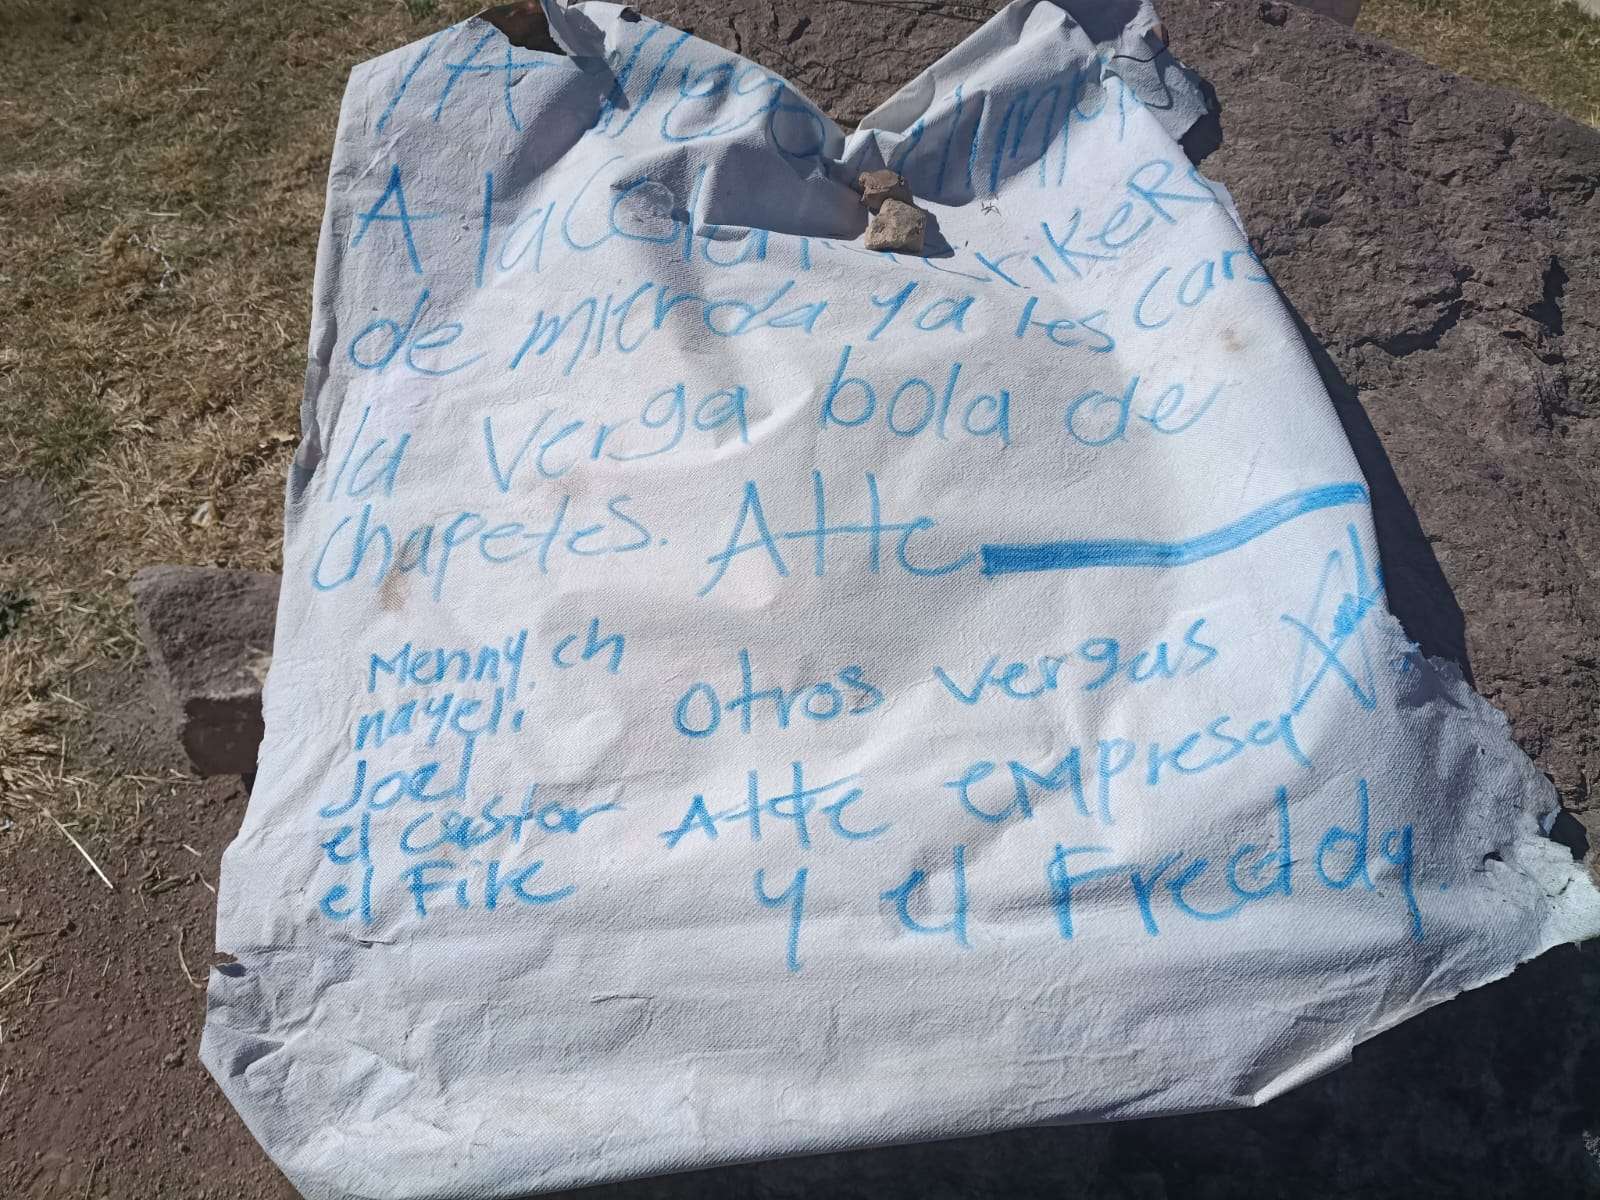 YA llego
A la Colon
de mierda ya les
la verga bola de
chapetes. Atte
Menny. ch
nayeli
Joel
el castor
el Fike
otros vergas
Atte empresa
y el Freddy.